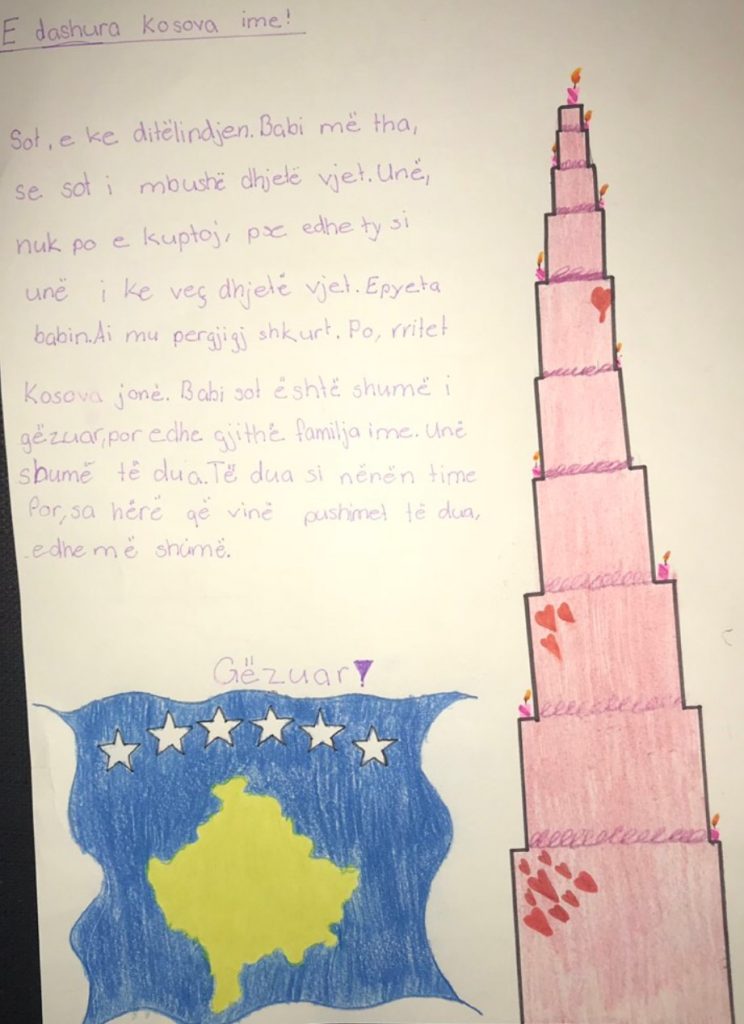 E dashura Kosova ime!
Sot, e ke ditëlindjen. Babi më tha,
se sot i mbushë dhjetë vjet. Unë,
nuk po e kuptoj, pse edhe ty si
unë i ke veç dhjetë vjet. Epyeta
babin. Ai mu pergjigj shkurt. Po, rritet
Kosova jonë. Babi sot është shumë i
gëzuar, por edhe gjithë familja ime. Unë
shumë të dua. Të dua si nënën time
Por, sa hërë që vinë pushimet të dua,
edhe më shumë.
Gëzuar!